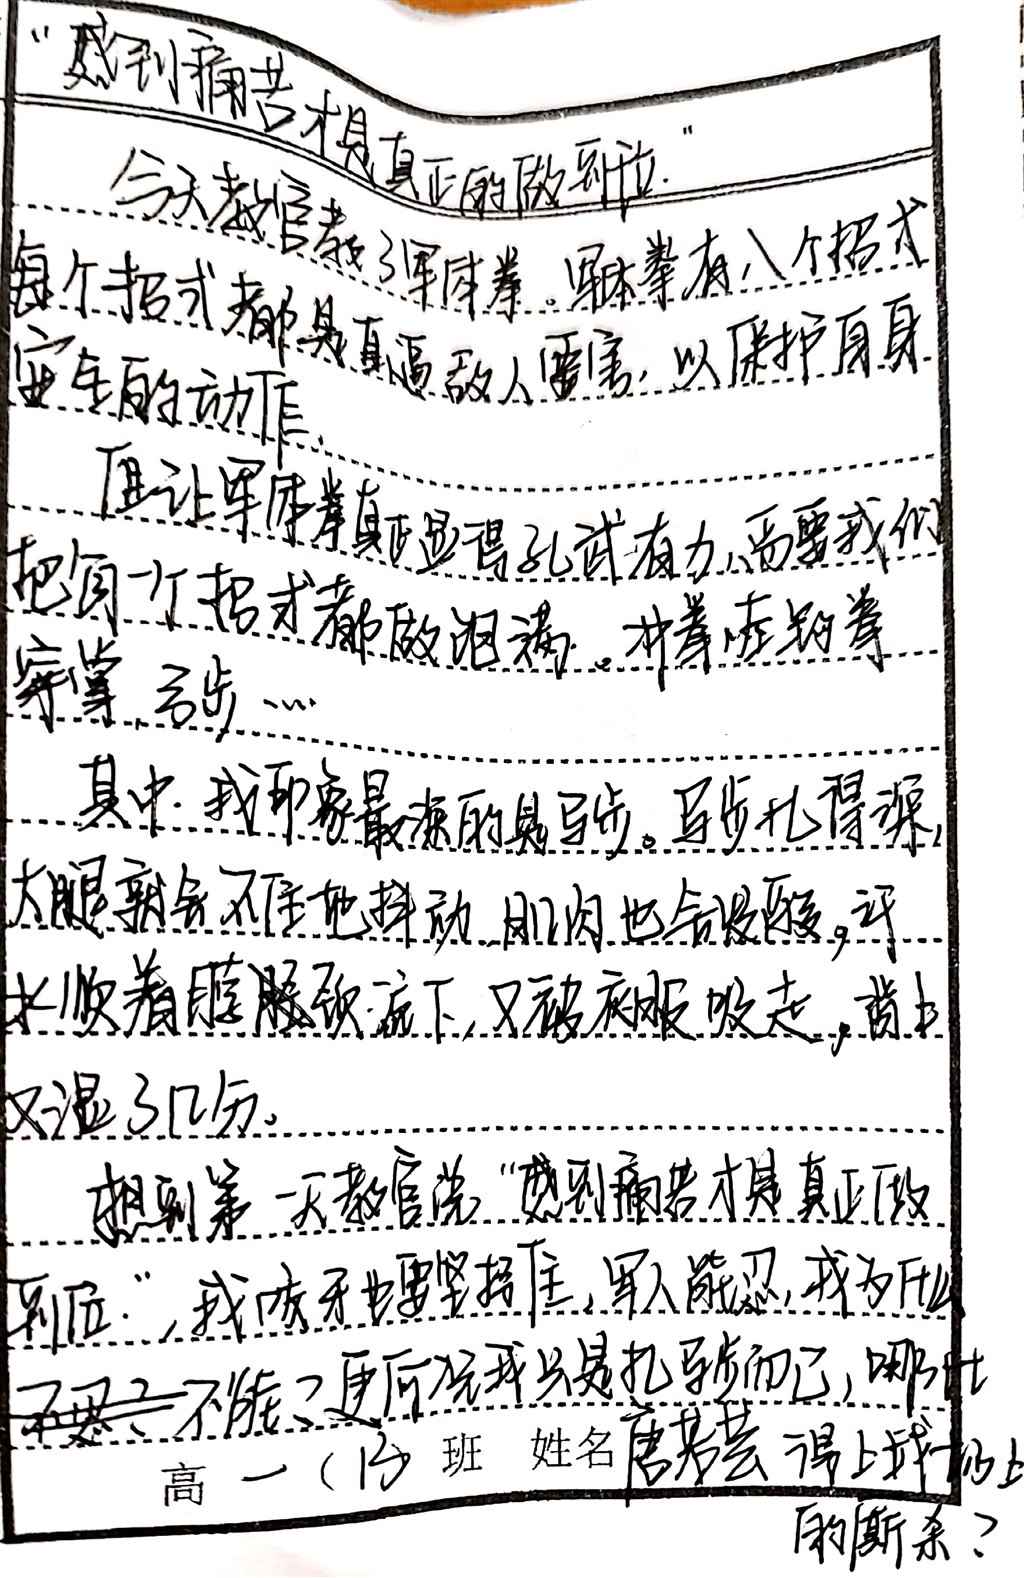 "感到痛苦才是真正的做到位."
今天教官教了军体拳。军体拳有八个招式
每个招式都是直逼敌人要害，以保护自身
安全的动作.
但让军体拳真正显得孔武有力、需要我们
把每一个招式都做饱满。冲拳,左勾拳
穿掌,弓步……
其中.我印象最深的是马步。马步扎得深，
大腿就会不住地抖动,肌肉也会发酸。汗
水顺着脖颈流下,又被衣服吸走,背上
又湿了几分。
想到第一天教官说"感到痛苦才是真正做
到位."，我咬牙也要坚持住,军人能忍,我为什么
不能？更何况我只是扎马步而已，哪比
得上战场上
的厮杀？
高一（13）班 姓名 唐若芸